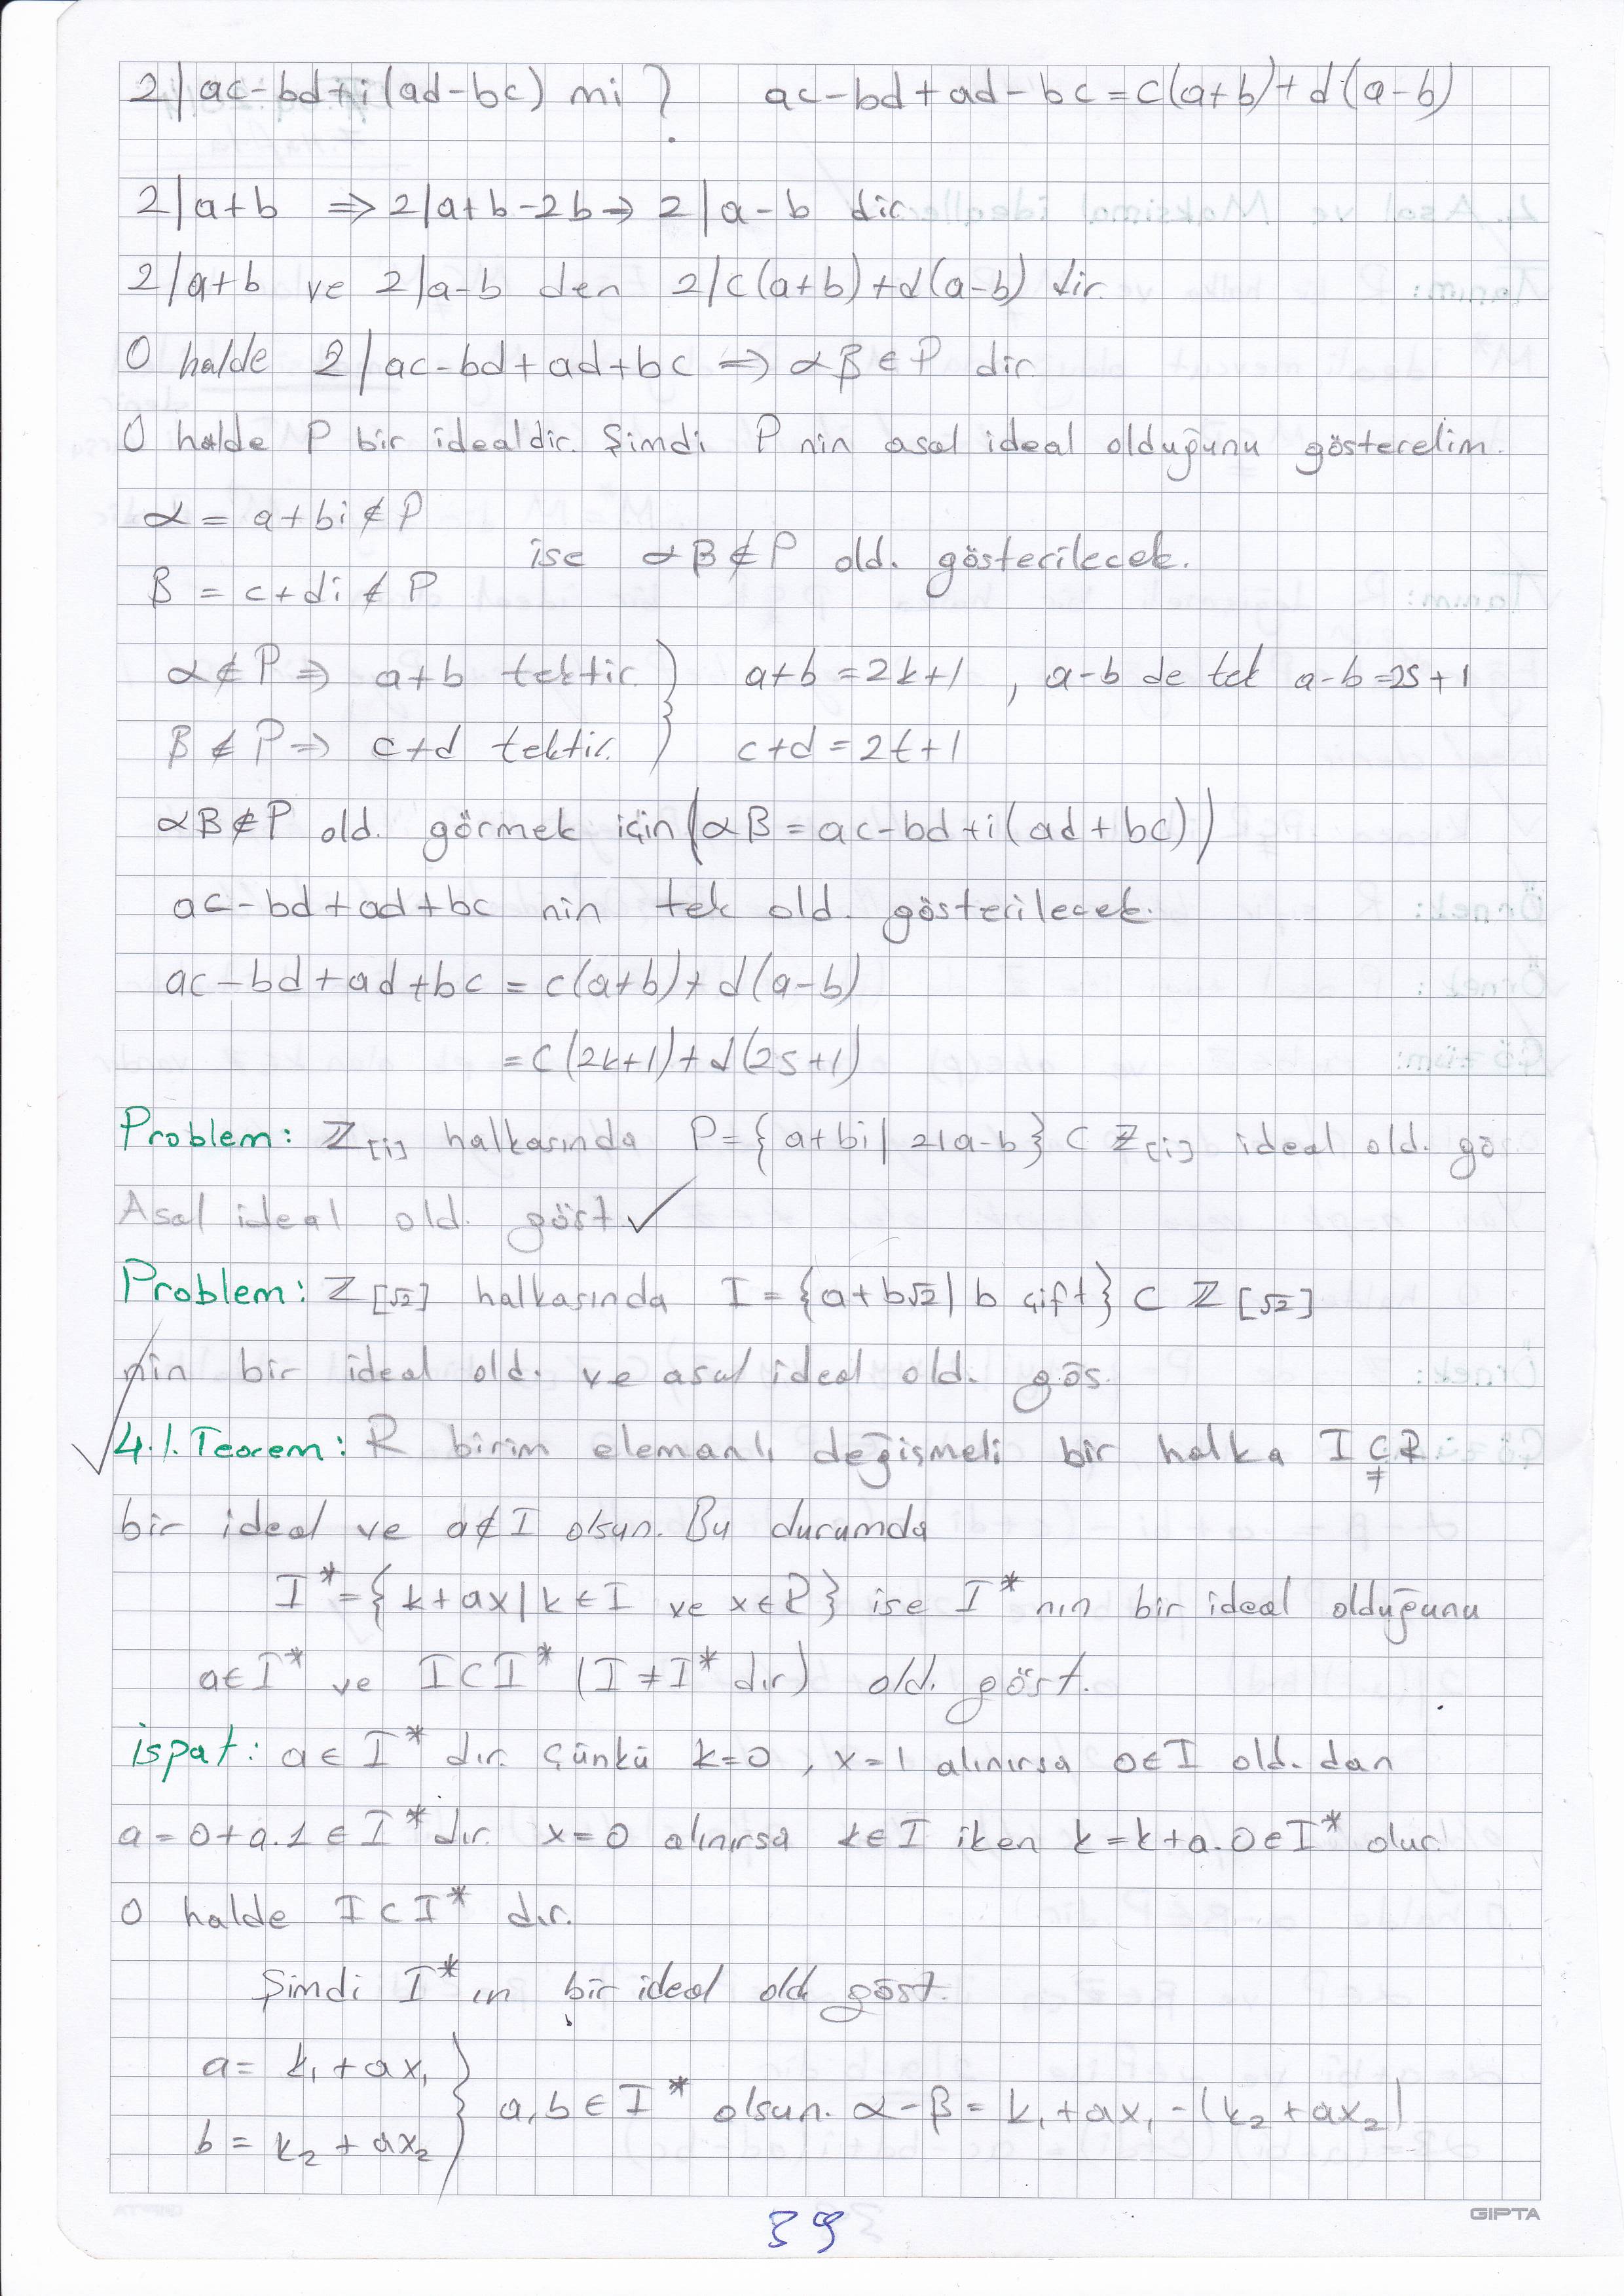 2|ac-bd+i(ad-bc) mi? ac-bd+ad-bc=c(a+b)+d(a-b)
2|a+b ⇒ 2|a+b-2b ⇒ 2|a-b dir.
2|a+b ve 2|a-b den 2|c(a+b)+d(a-b) dir.
O halde 2|ac-bd+ad+bc ⇒ αβ∈P dir.
O halde P bir idealdir. Şimdi P nin asal ideal olduğunu gösterelim.
α = a+bi ∉ P
ise αβ∉P old. gösterilecek.
β = c+di ∉ P
α∉P ⇒ a+b tektir. } a+b=2k+1 , a-b de tek a-b=2s+1
β∉P ⇒ c+d tektir. c+d=2t+1
αβ∉P old. görmek için (αβ=ac-bd+i(ad+bc))
ac-bd+ad+bc nin tek old. gösterilecek.
ac-bd+ad+bc = c(a+b)+d(a-b)
=c(2k+1)+d(2s+1)
Problem: ℤ[i] halkasında P={a+bi| 2|a-b} ⊂ ℤ[i] ideal old. gö
Asal ideal old. göst. ✓
Problem: ℤ[√2] halkasında I={a+b√2| b çift} ⊂ ℤ[√2]
nin bir ideal old. ve asal ideal old. gös.
✓ 4.1. Teorem: R birim elemanlı değişmeli bir halka I⊊R
bir ideal ve a∉I olsun. Bu durumda
I*={k+ax|k∈I ve x∈R} ise I* nın bir ideal olduğunu
a∈I* ve I⊂I* (I≠I* dır) old. göst.
ispat: a∈I* dır. Çünkü k=0, x=1 alınırsa 0∈I old. dan
a=0+a.1∈I* dır. x=0 alınırsa k∈I iken k=k+a.0∈I* olur.
O halde I⊂I* dır.
Şimdi I* ın bir ideal old. göst.
a= k₁+ax₁
} a,b∈I* olsun. α-β= k₁+ax₁-(k₂+ax₂)
b = k₂+ax₂
GIPTA
39